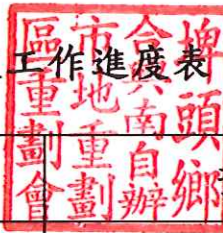 工作進度表
埤頭鄉
合興南自辦
市地重劃
區重劃會